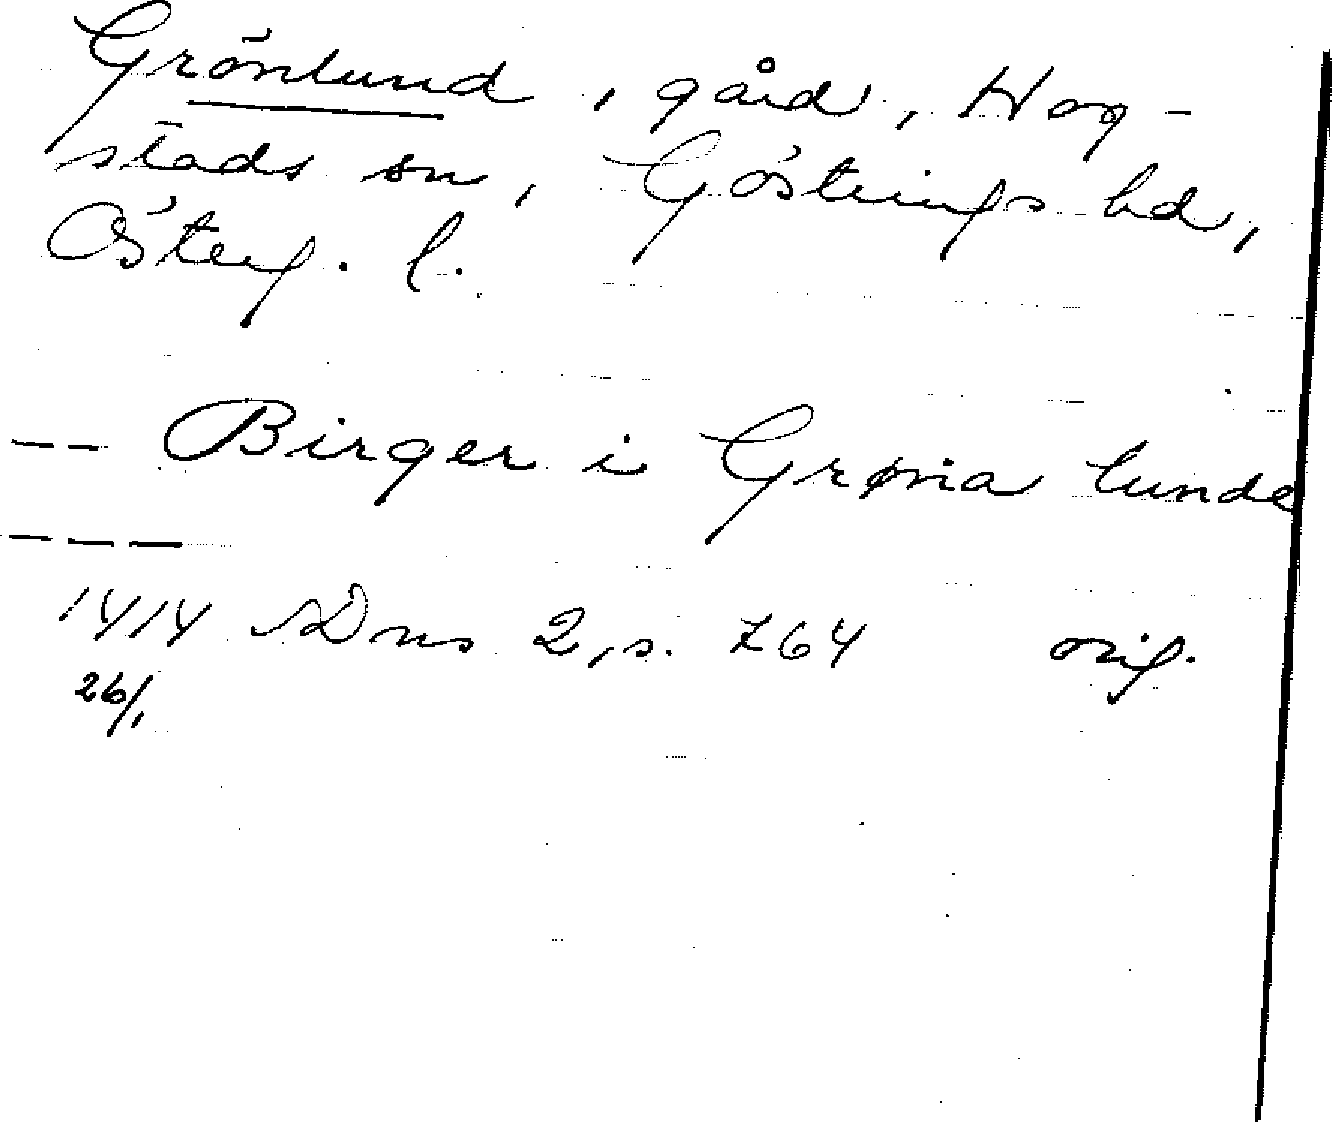 Grönlund, gård, Hog-
stads sn, Göstrings hd,
Österg. l.
-- Birger i Grøna lunde
---
1414 SDns 2, s. 764 orig.
26/1